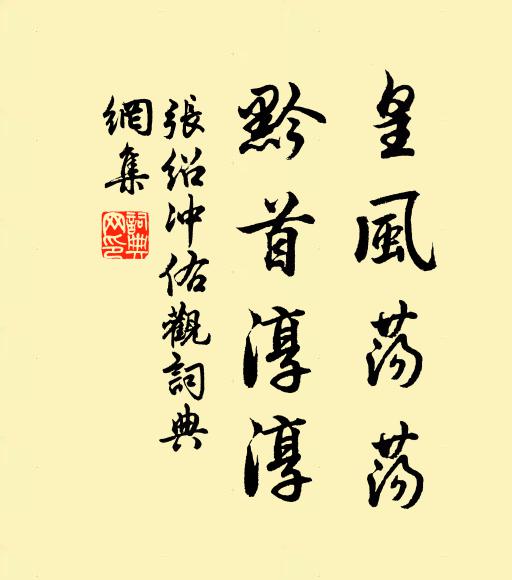 皇風蕩蕩
黔首淳淳
張紹沖佑觀詞典
網集
詞典網印